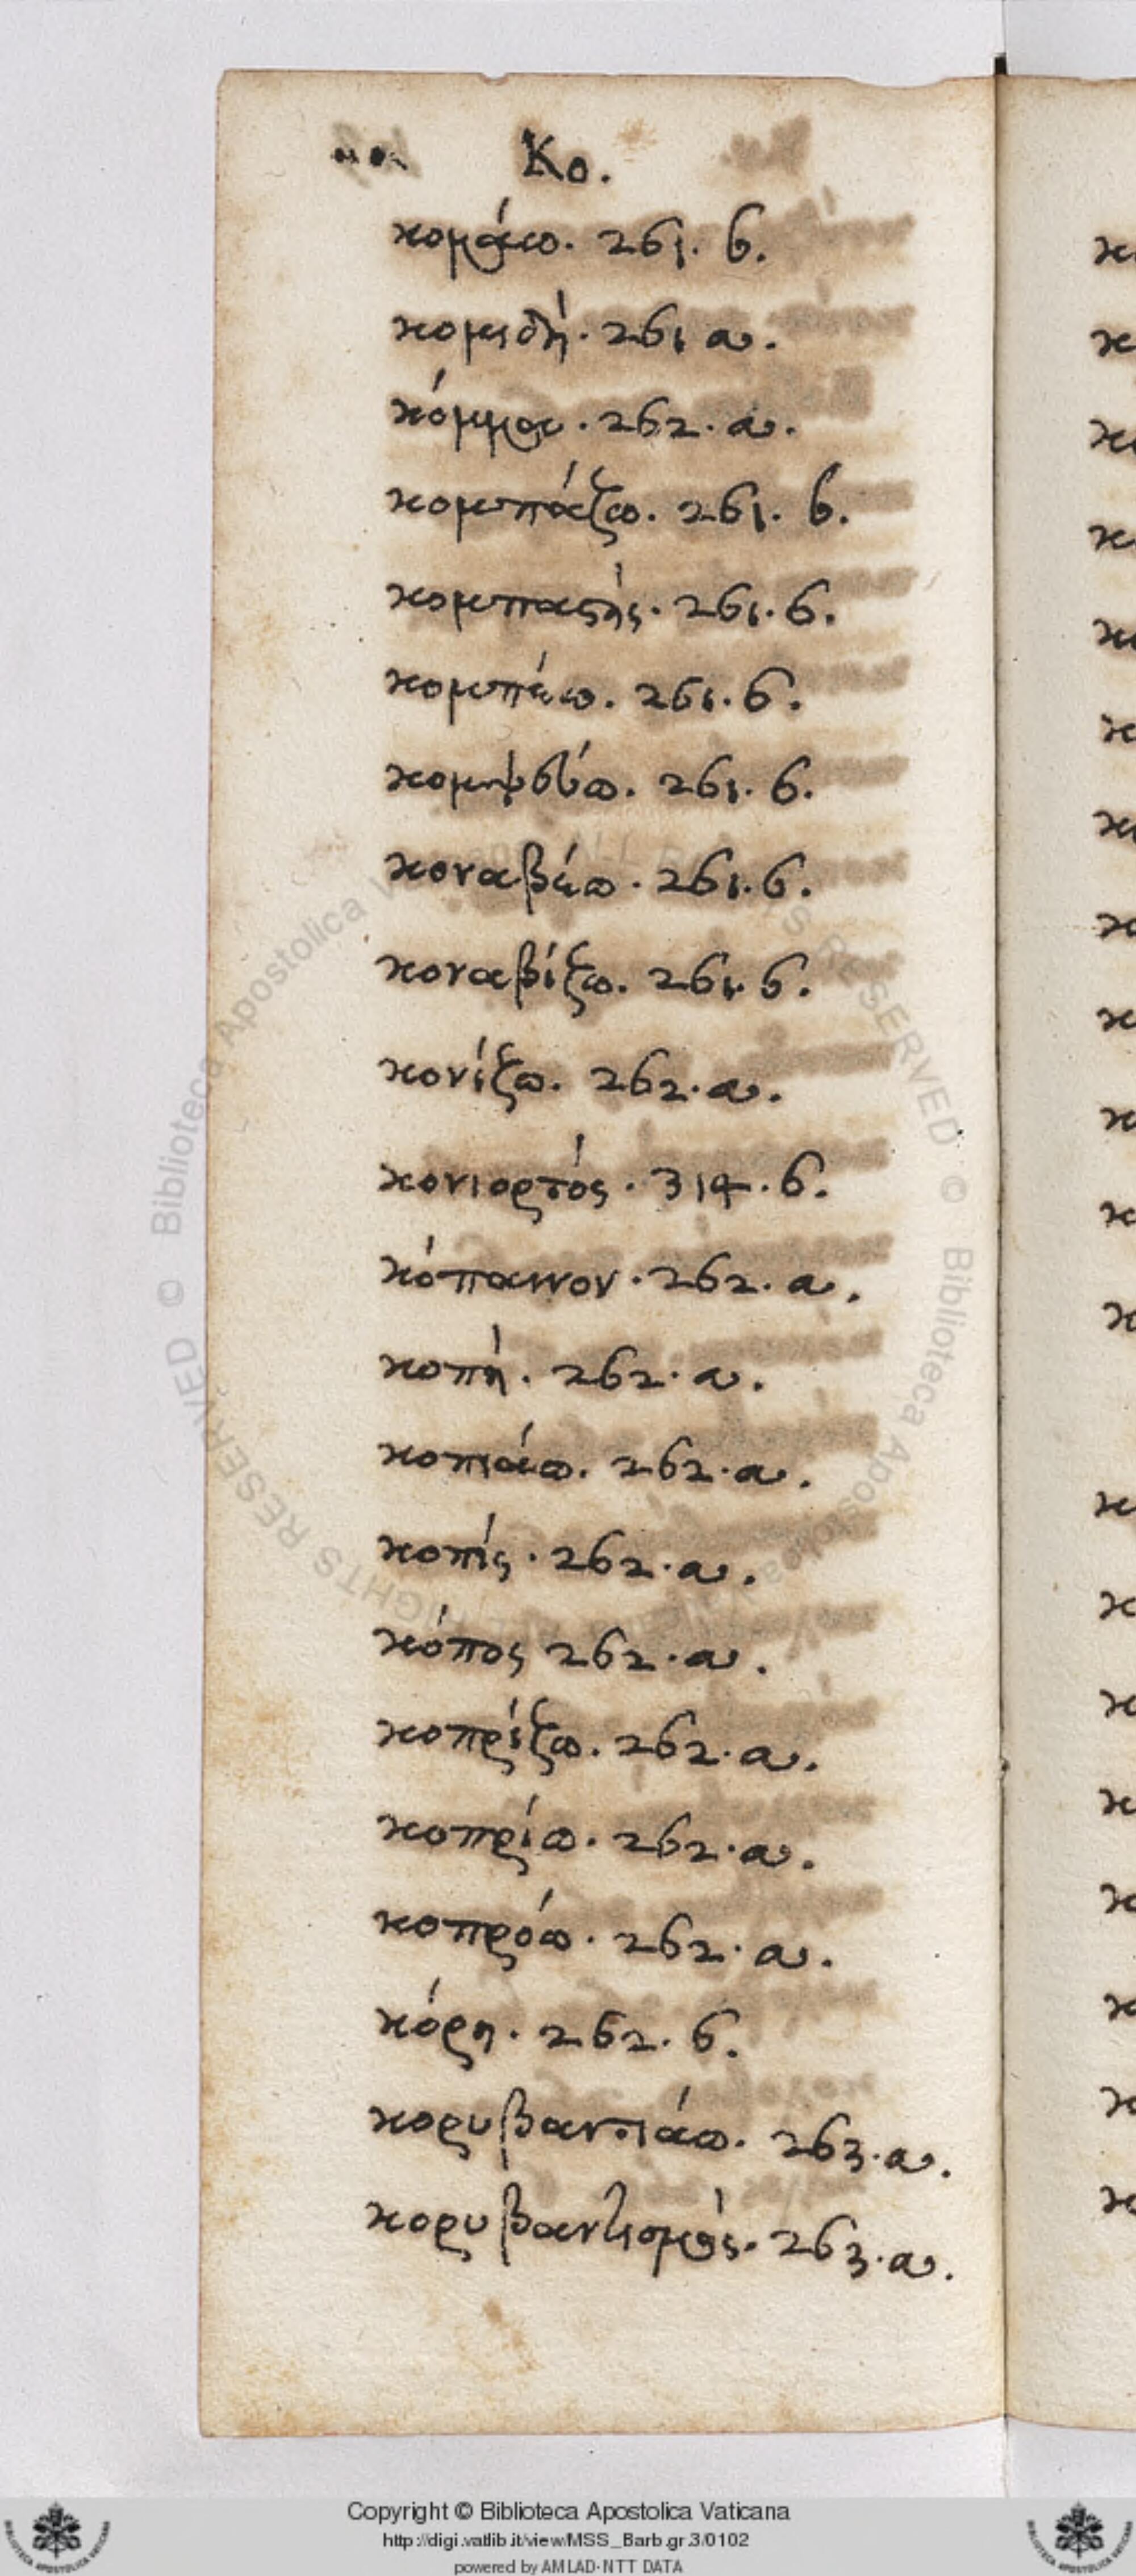 Κο.
κομάω. 261. b.
κομιδή. 261 a.
κόμμοι. 262. a.
κομπάζω. 261. b.
κομπαςής. 261. b.
κομπέω. 261. b.
κομψεύω. 261. b.
κοναβέω. 261. b.
κοναβίζω. 261. b.
κονίζω. 262. a.
κονιορτός. 314. b.
κόπανον. 262. a.
κοπή. 262. a.
κοπιάω. 262. a.
κοπίς. 262. a.
κόπος 262. a.
κοπρίζω. 262. a.
κοπρίω. 262. a.
κοπρόω. 262. a.
κόρη. 262. b.
κορυβαντιάω. 263. a.
κορυβαντισμός. 263. a.
Copyright © Biblioteca Apostolica Vaticana
http://digi.vatlib.it/view/MSS_Barb.gr.3/0102
powered by AMLAD-NTT DATA